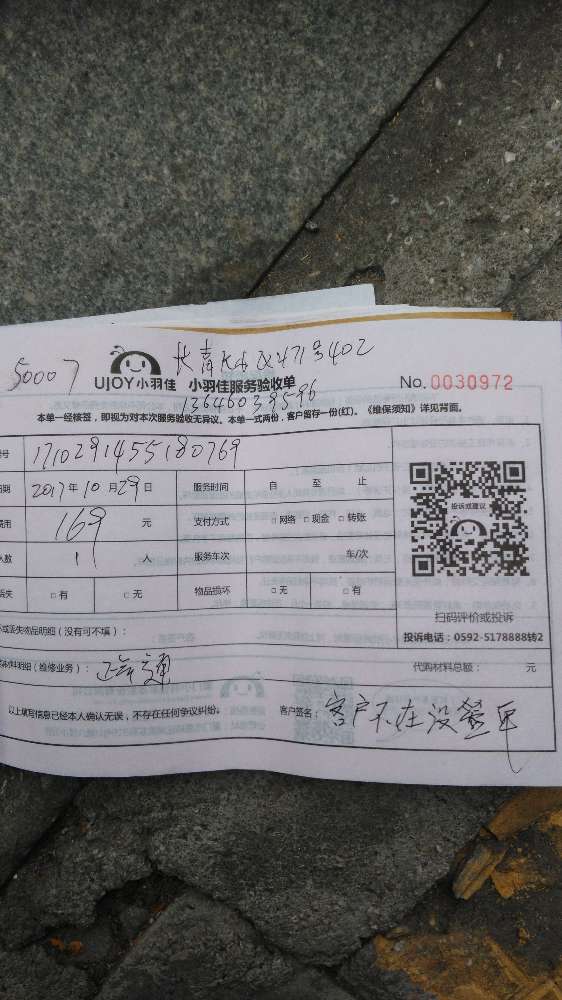 50007
UJOY小羽佳 小羽佳服务验收单 No. 0030972
本单一经核签，即视为对本次服务验收无异议。本单一式两份，客户留存一份(红)。《维保须知》详见背面。
号 1710291455180769
期 2017年10月29日 服务时间 自 至 止
费用 169 元 支付方式 □网络 □现金 □转账
人数 1 人 服务车次 车/次
丢失 □有 □无 物品损坏 □无 □有
投诉或建议
扫码评价或投诉
投诉电话：0592-5178888转2
坏或丢失物品明细（没有可不填）：
明细（维修业务）： 代购材料总额： 元
以上填写信息已经本人确认无误，不存在任何争议纠纷。 客户签名： 客户不在没签单